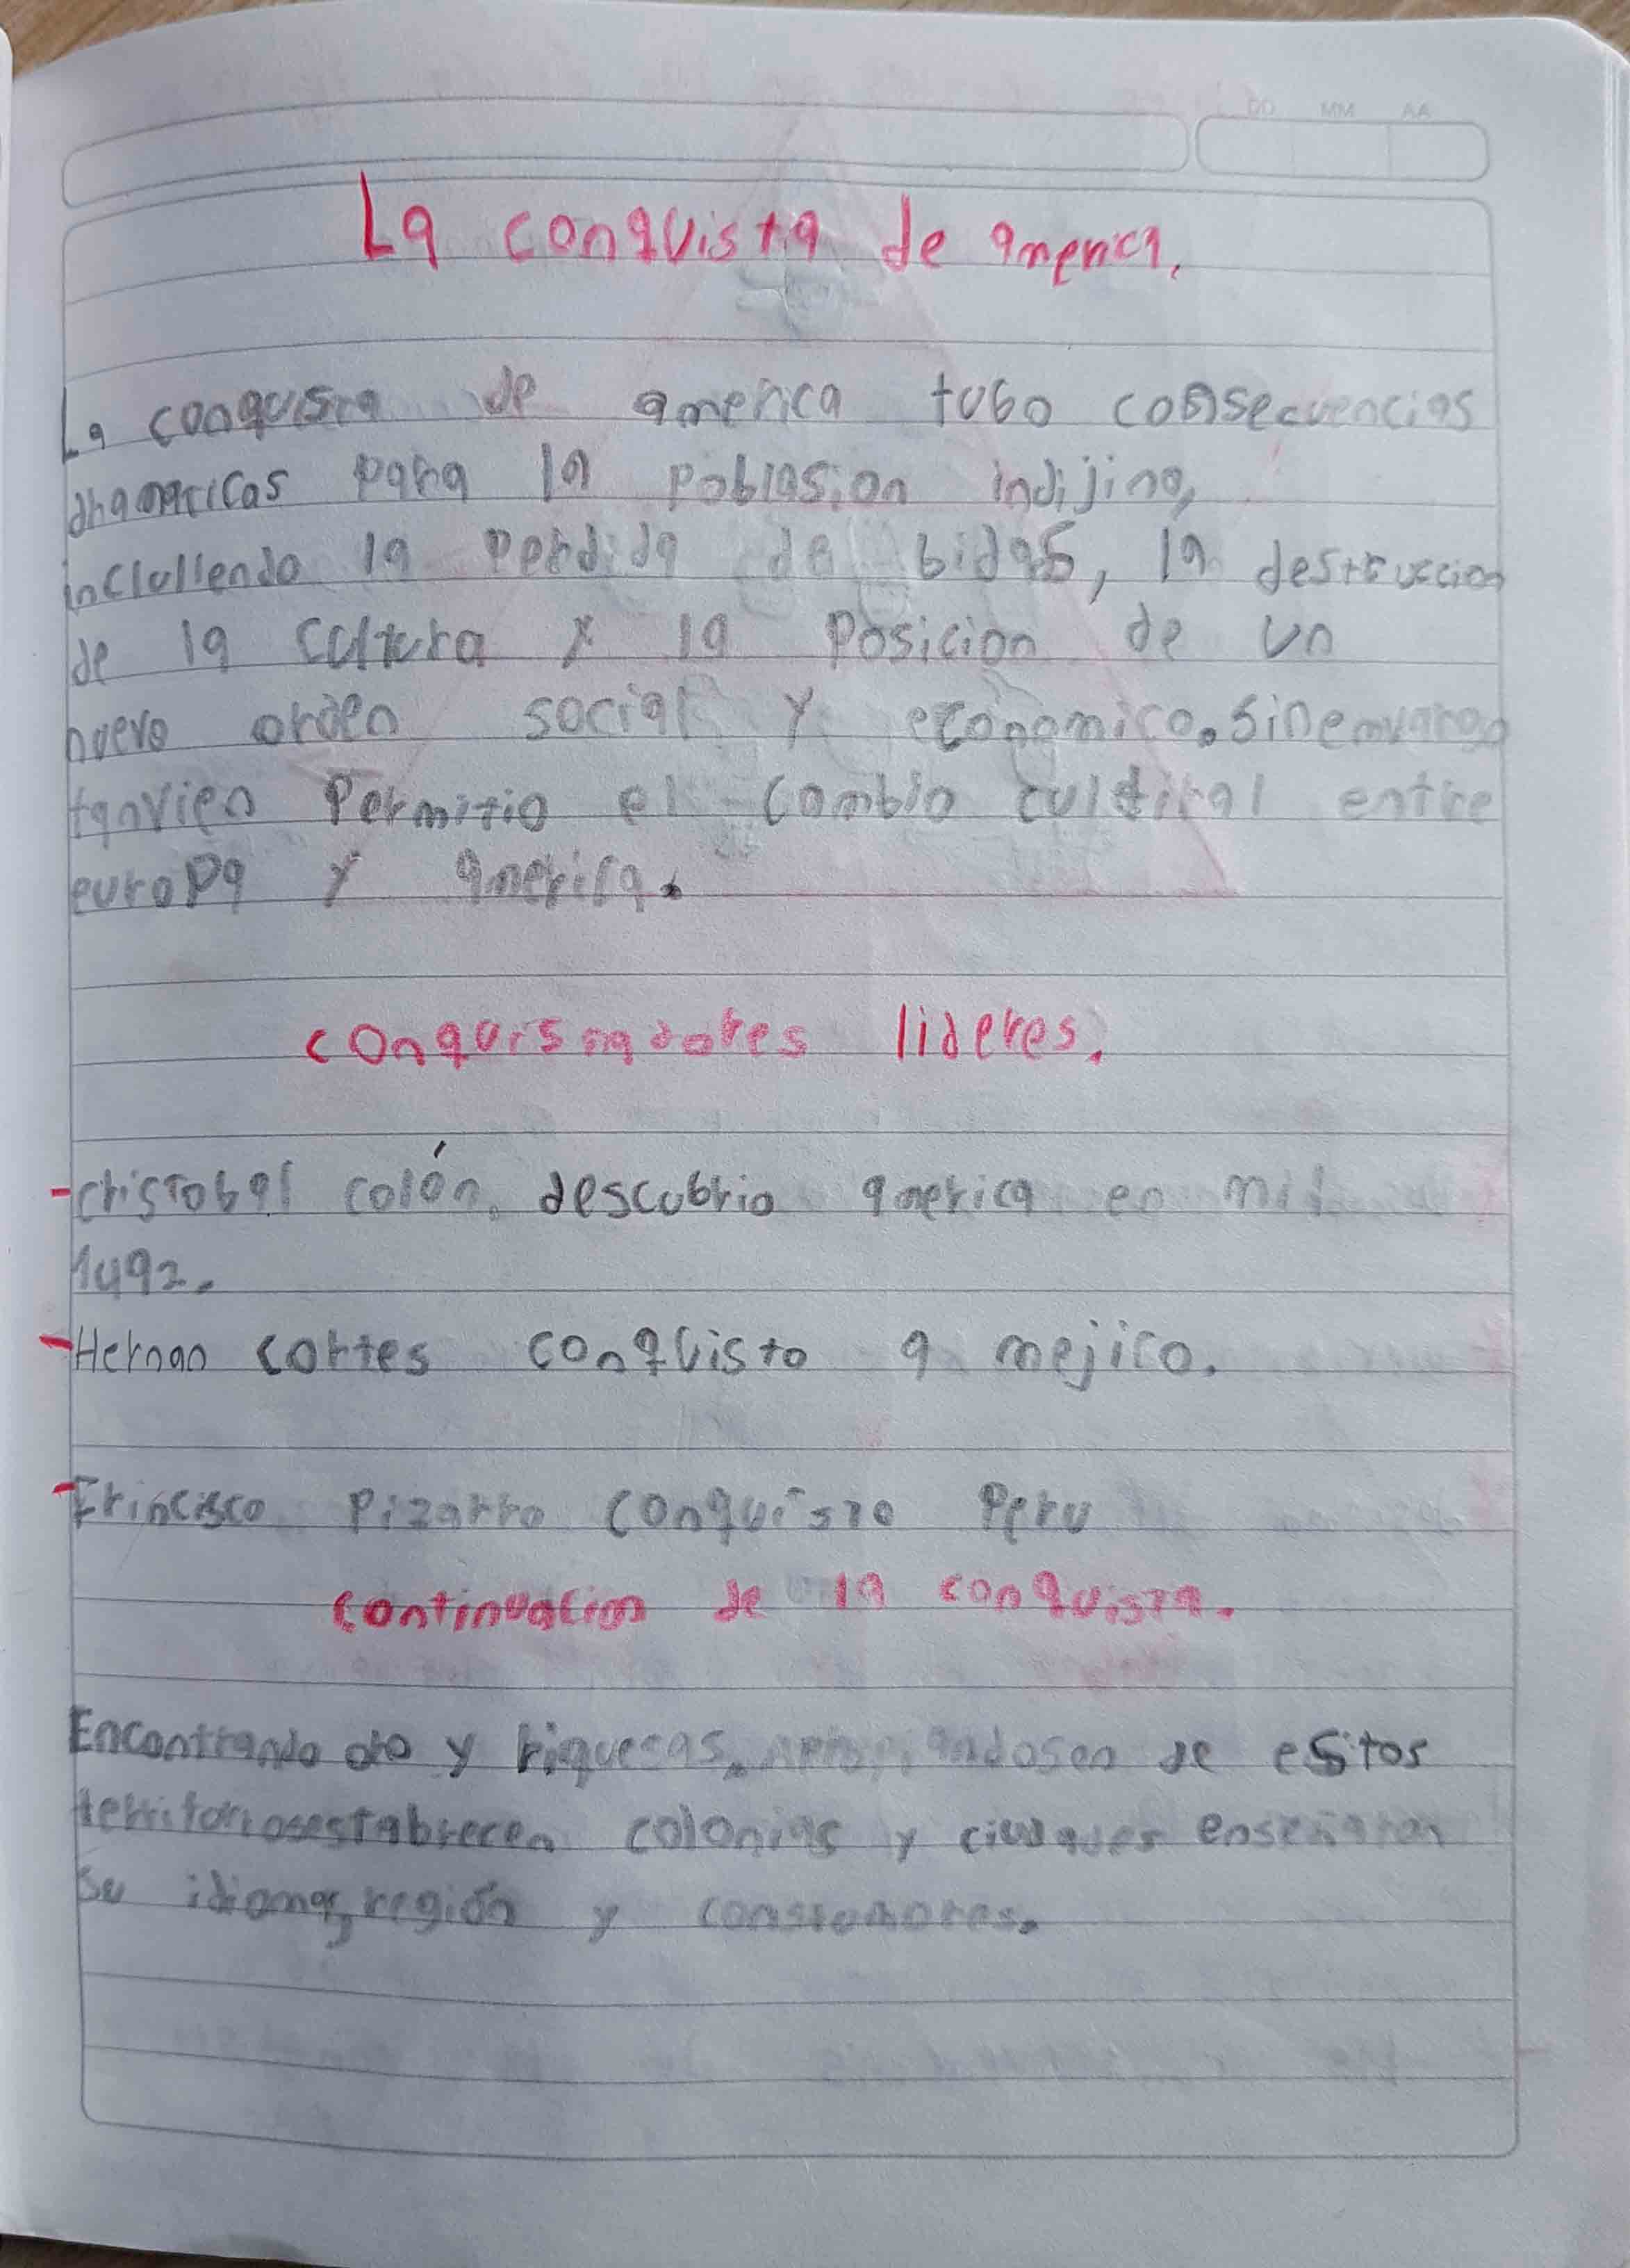 DD MM AA
La conquista de america.
La conquista de america tubo consecuencias
dramaticas para la poblasion indijina,
inclullendo la perdida de bidas, la destruccion
de la cultura y la posicion de un
nuevo orden social y economico. Sinemvargo
tanvien Permitio el cambio cultural entre
europa y america.
conquistadores lideres.
-cristobal colón. descubrio america en mil
1492.
-Hernan cortes conquisto a mejico.
-Francisco Pizarro conquisto Peru
continuacion de la conquista.
Encontrando oro y riquecas. apropiandosen de estos
territoriosestabrecen colonias y ciudades enseñaron
su idioma, región y